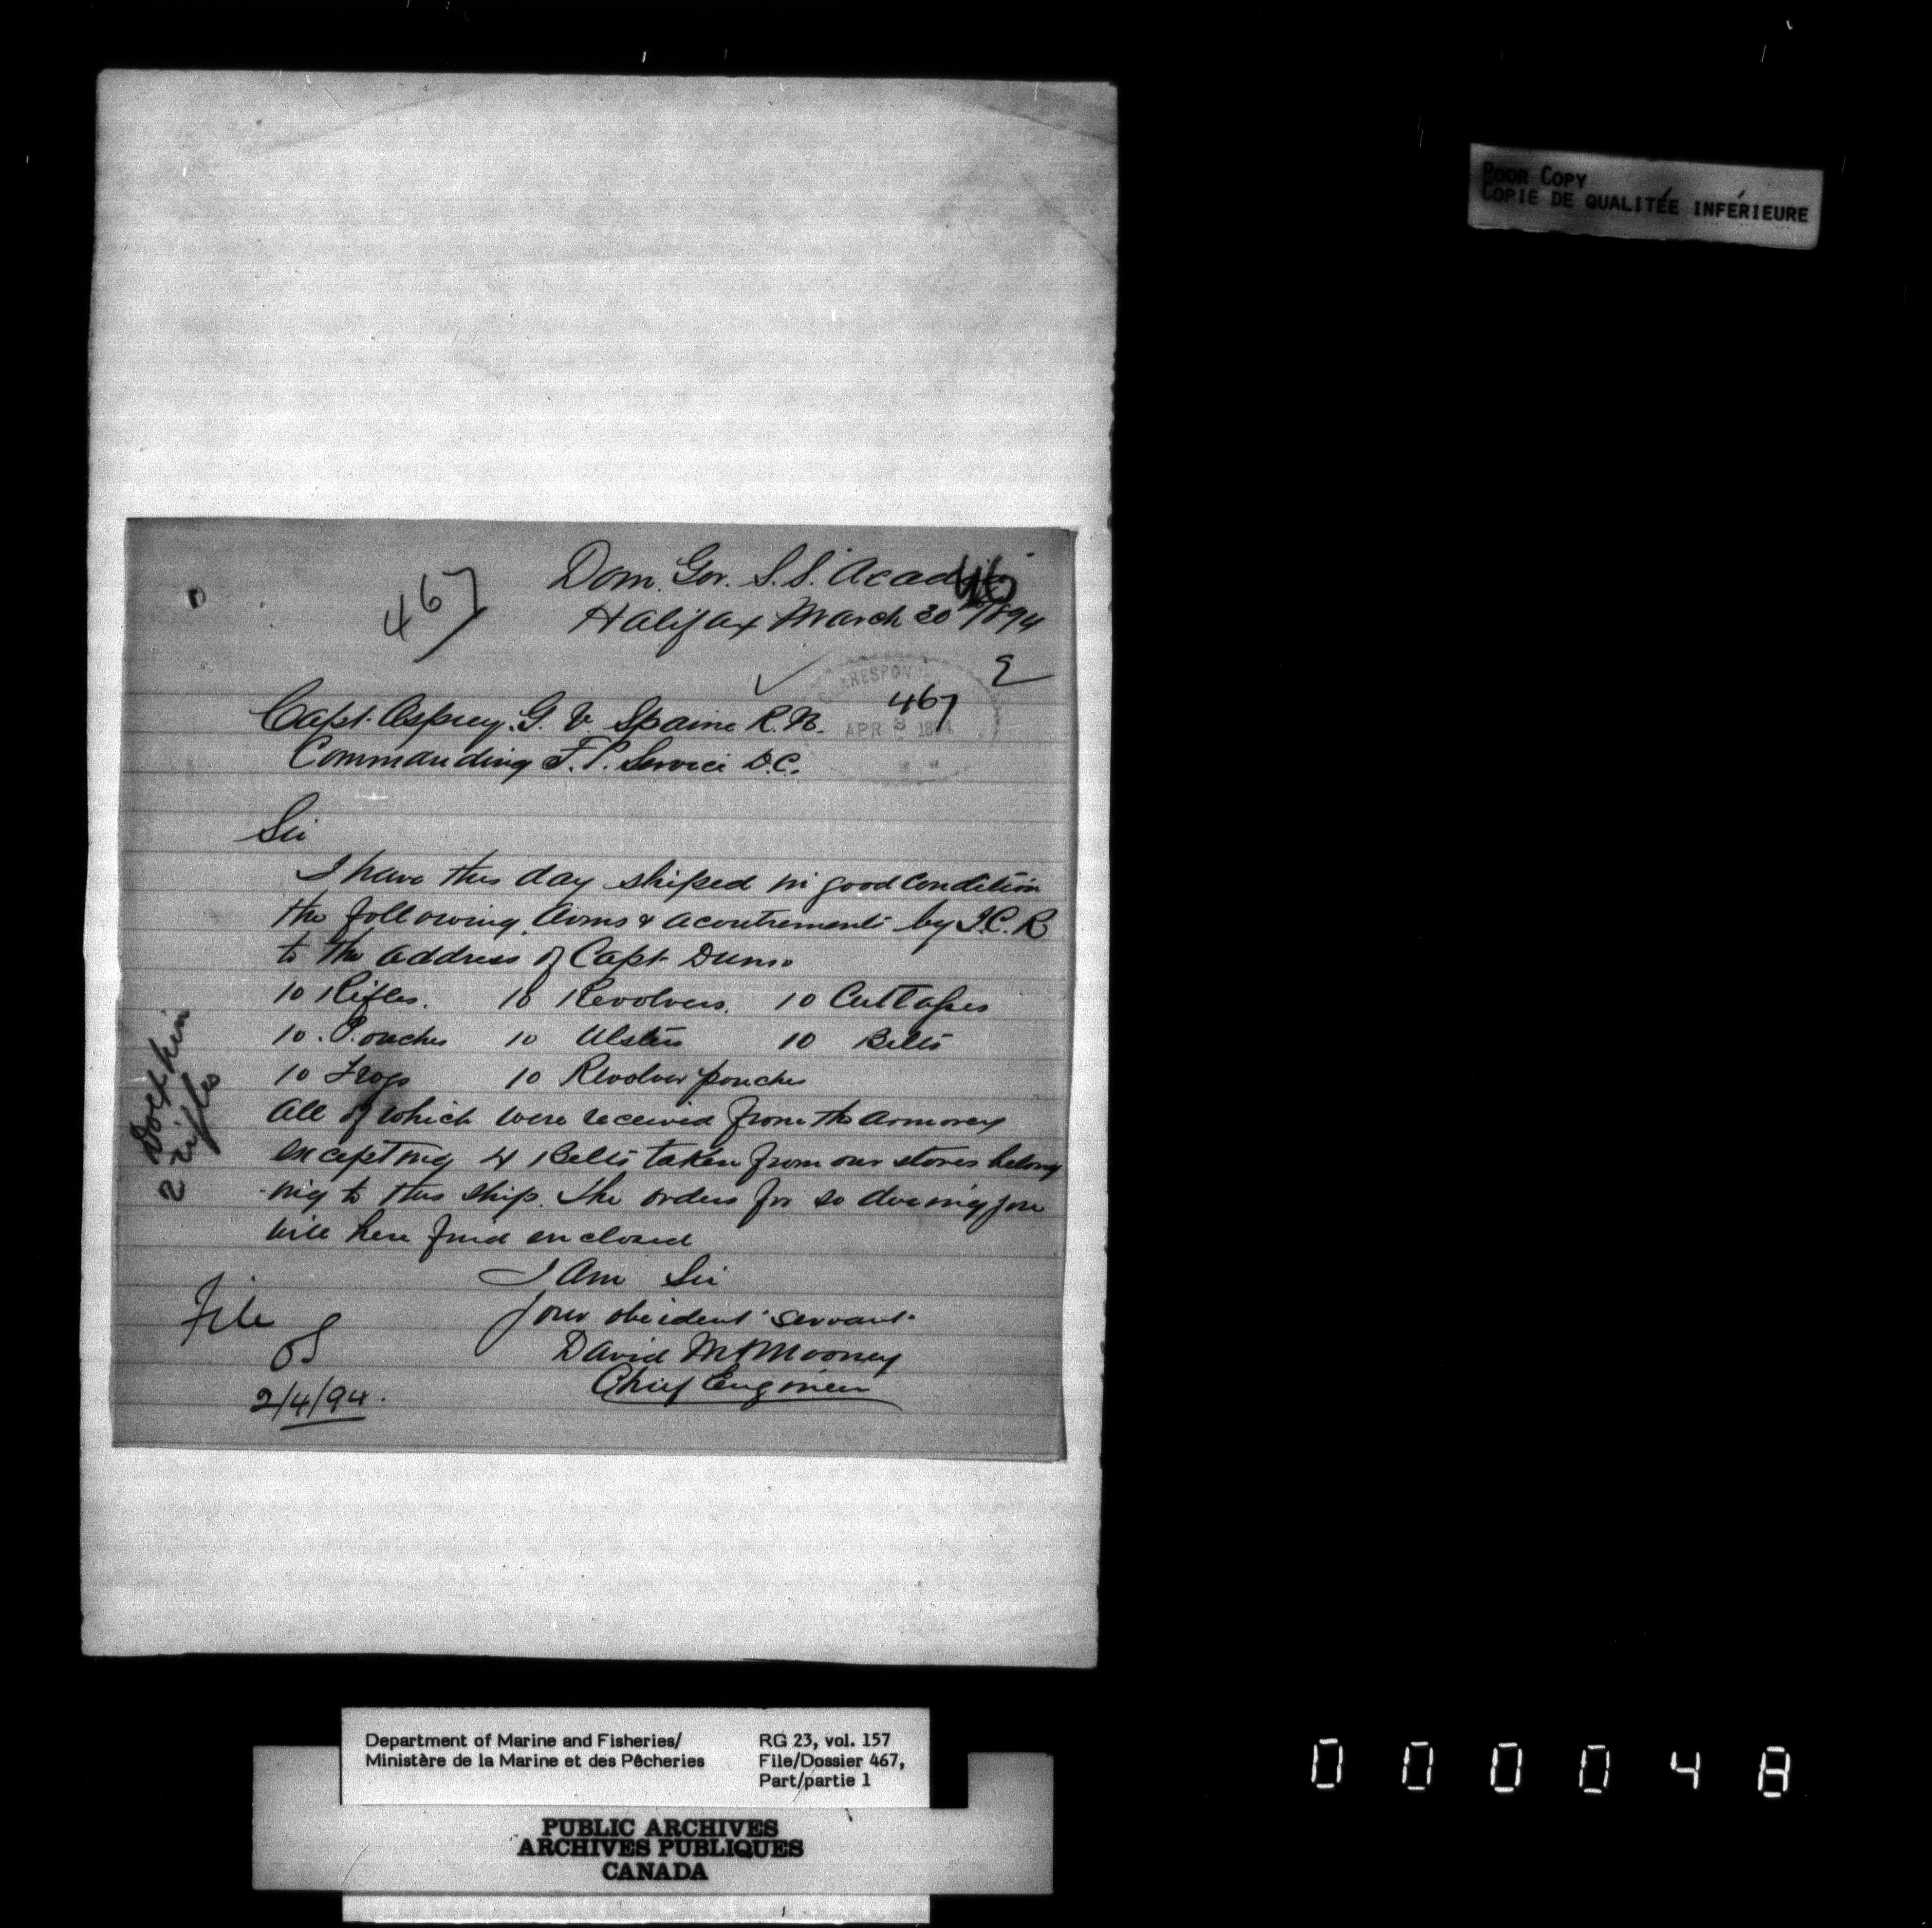 POOR COPY
COPIE DE QUALITÉE INFÉRIEURE
Dom. Gov. S.S. Acadia
46
467
Halifax March 30th/1894
2
CORRESPON
467
APR 3 1894
Capt. Osprey. G. V. Spaine R.N.
Commanding F.P. Service D.C.
Sir
I have this day shiped in good Condition
the following Arms & acoutrements by I.C.R
to the address of Capt Dunn
10 Rifles. 10 Revolvers. 10 Cutlasses
10. Pouches 10 Ulsters 10 Belts
10 Frogs 10 Revolver pouches
All of which were received from the armorey
excepting 4 Belts taken from our stores belong
-ing to this ship. The orders for so doeing you
will here find enclosed
I Am Sir
your obeident servant
David McMooney
Chief Engineer
2 rifles
File
OS
2/4/94.
Department of Marine and Fisheries/
Ministère de la Marine et des Pêcheries
RG 23, vol. 157
File/Dossier 467,
Part/partie 1
PUBLIC ARCHIVES
ARCHIVES PUBLIQUES
CANADA
000048